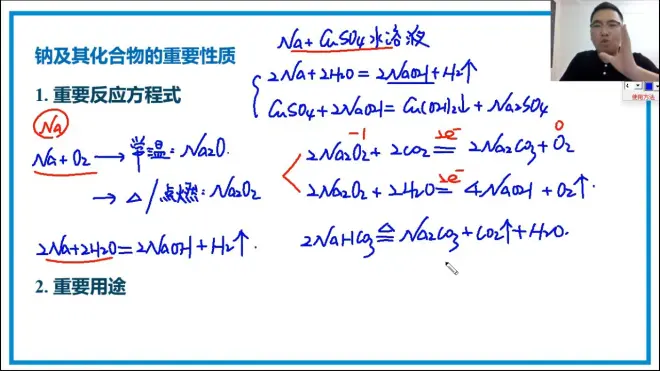 钠及其化合物的重要性质
1. 重要反应方程式
Na
Na+O2 → 常温: Na2O.
→ △/点燃: Na2O2
2Na+2H2O=2NaOH+H2↑.
2. 重要用途
Na+CuSO4水溶液
2Na+2H2O=2NaOH+H2↑
CuSO4+2NaOH=Cu(OH)2↓+Na2SO4
-1 2e⁻ 0
2Na2O2+2CO2=2Na2CO3+O2
2e⁻
2Na2O2+2H2O=4NaOH+O2↑.
△
2NaHCO3=Na2CO3+CO2↑+H2O.
使用方法